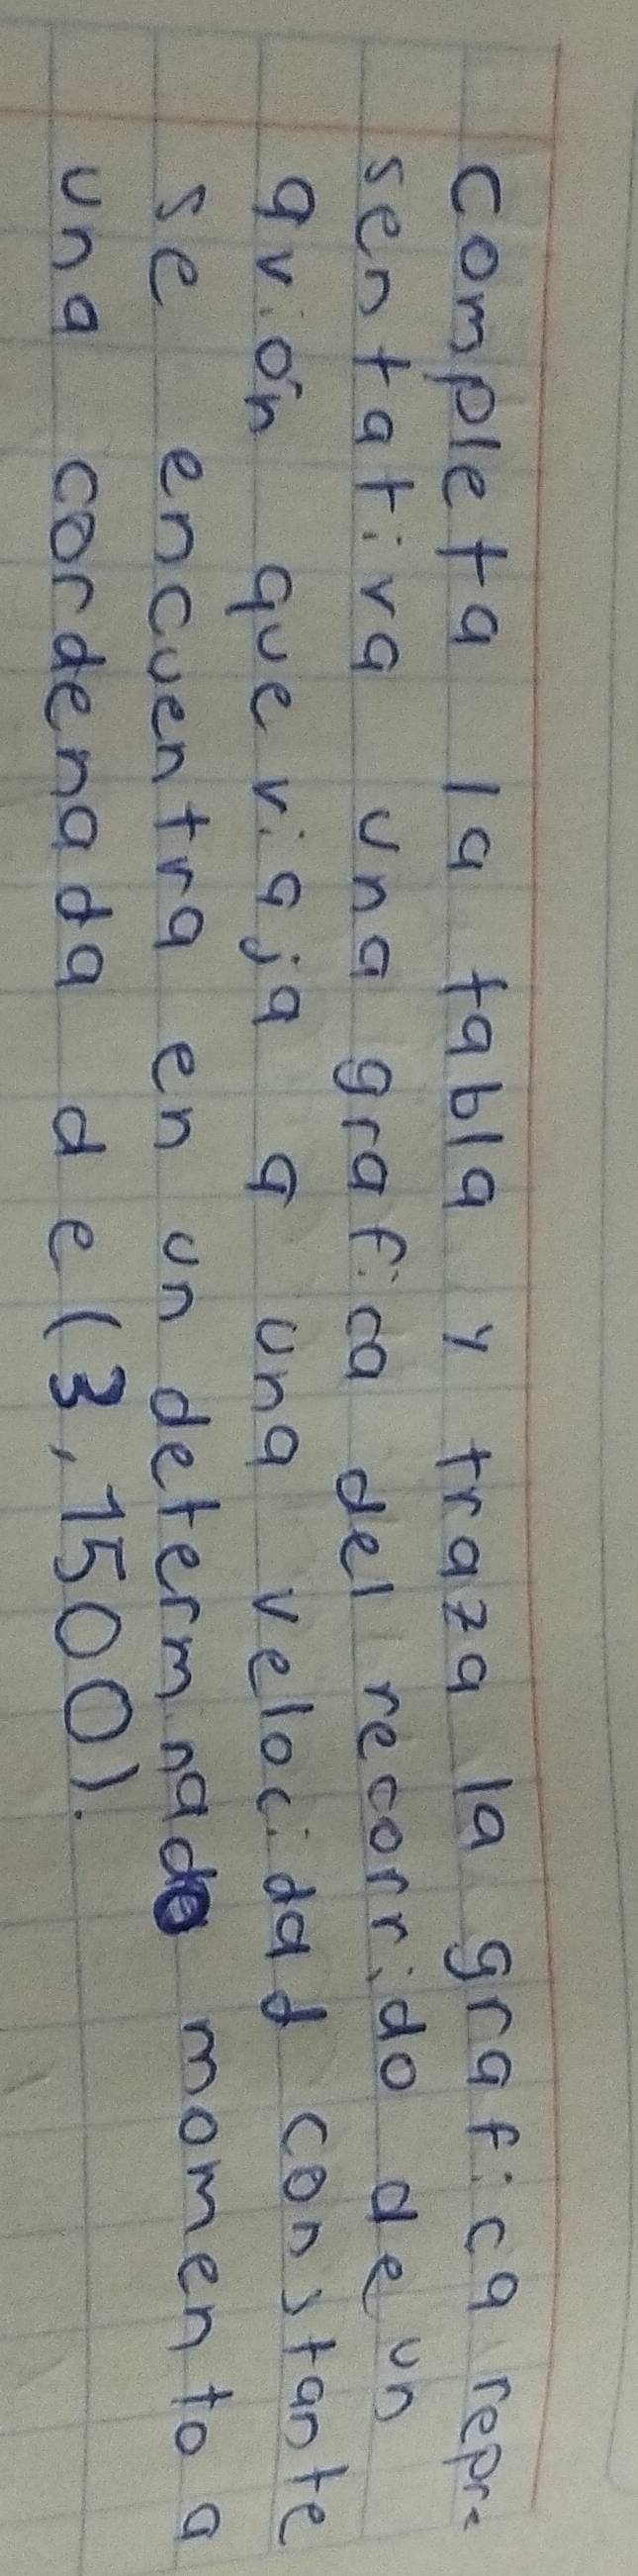 completa la tabla y traza la grafica repre-
sentativa una grafica del recorrido de un
avión que viaja a una velocidad constante
se encuentra en un determinado momento a
una cordenada de (3,1500).